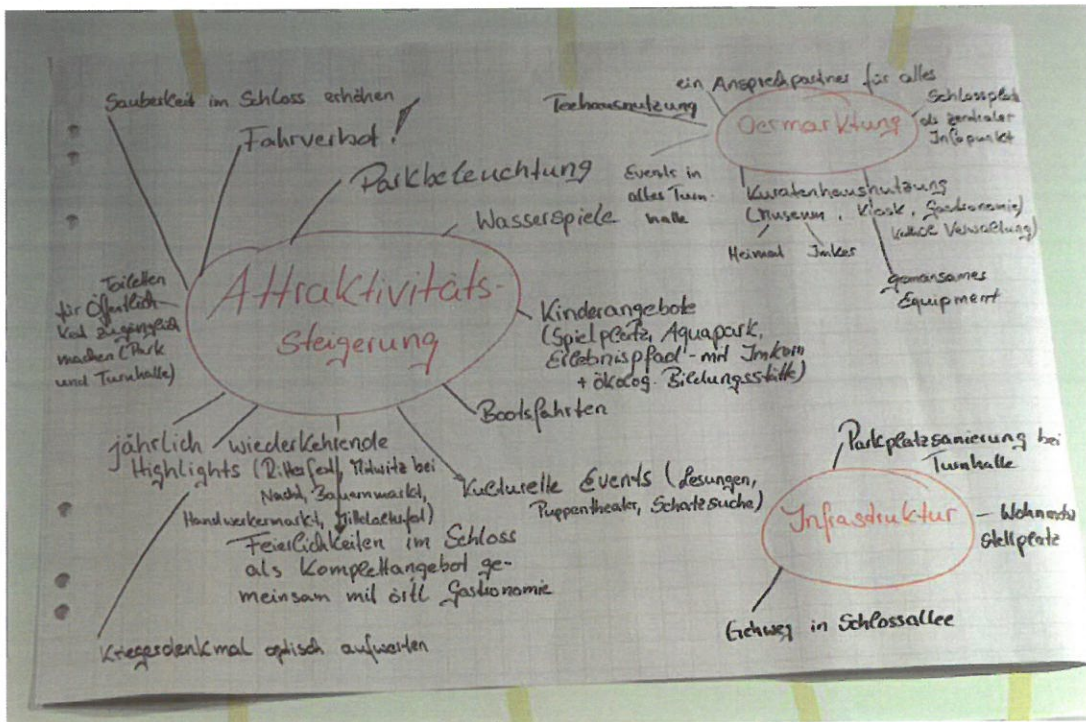 Sauberkeit im Schloss erhöhen
Fahrverbot!
Parkbeleuchtung
Wasserspiele
Attraktivitäts-
steigerung
Toiletten
für Öffentlich
keit zugänglich
machen (Park
und Turnhalle)
Kinderangebote
(Spielplatz, Aquapark,
Erlebnispfad - mit Imkern
+ ökolog. Bildungsstätte)
Bootsfahrten
jährlich wiederkehrende
Highlights (Ritterfest, Mitwitz bei
Nacht, Bauernmarkt,
Handwerkermarkt, Mittelalterfest)
Kulturelle Events (Lesungen,
Puppentheater, Schatzsuche)
Feierlichkeiten im Schloss
als Komplettangebot ge-
meinsam mit örtl Gastronomie
Kriegerdenkmal optisch aufwerten
ein Ansprechpartner für alles
Teehausnutzung
Vermarktung
Schlossplatz
als zentraler
Infopunkt
Events in
altes Turn-
halle
Kuratenhausnutzung
(Museum, Kiosk, Gastronomie)
Verwaltung)
Heimat Imker
gemeinsames
Equipment
Parkplatzsanierung bei
Turnhalle
Infrastruktur
Wohnmobil
stellplatz
Gehweg in Schlossallee